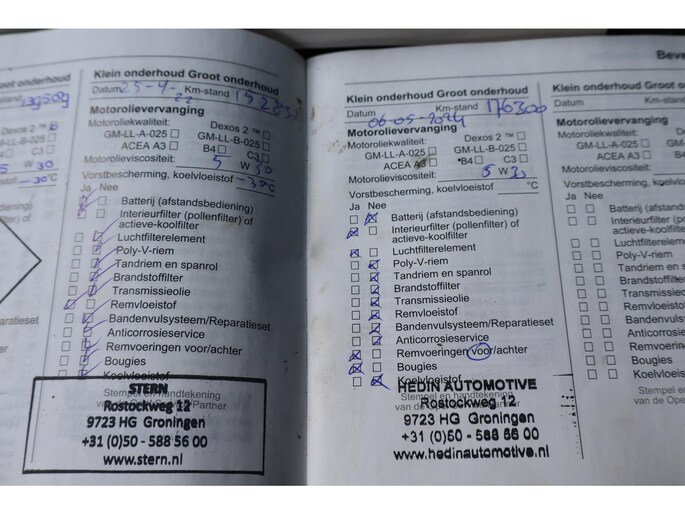 onderhoud
stand 139509
Dexos 2 ™
M-LL-B-025
C3
5 W 30
-30°C
g) of
aratieset
Klein onderhoud Groot onderhoud
Datum 25-4-22 Km-stand
Motorolievervanging
Motoroliekwaliteit: Dexos 2 ™
GM-LL-A-025 GM-LL-B-025
ACEA A3 B4 C3
Motorolieviscositeit: 5 W 30
Vorstbescherming, koelvloeistof -30°C
Ja Nee
Batterij (afstandsbediening)
Interieurfilter (pollenfilter) of
actieve-koolfilter
Luchtfilterelement
Poly-V-riem
Tandriem en spanrol
Brandstoffilter
Transmissieolie
Remvloeistof
Bandenvulsysteem/Reparatieset
Anticorrosieservice
Remvoeringen voor/achter
Bougies
Koelvloeistof
Stempel en handtekening
van de Opel Service Partner
STERN
Rostockweg 12
9723 HG Groningen
+31 (0)50 - 588 56 00
www.stern.nl
Klein onderhoud Groot onderhoud
Datum 06-05-2024 Km-stand 176300
Motorolievervanging
Motoroliekwaliteit: Dexos 2 ™
GM-LL-A-025 GM-LL-B-025
ACEA A3 B4 C3
Motorolieviscositeit: 5 W 30
Vorstbescherming, koelvloeistof °C
Ja Nee
Batterij (afstandsbediening)
Interieurfilter (pollenfilter) of
actieve-koolfilter
Luchtfilterelement
Poly-V-riem
Tandriem en spanrol
Brandstoffilter
Transmissieolie
Remvloeistof
Bandenvulsysteem/Reparatieset
Anticorrosieservice
Remvoeringen voor/achter
Bougies
Koelvloeistof
Stempel en handtekening
van de Opel Partner
HEDIN AUTOMOTIVE
Rostockweg 12
9723 HG Groningen
+31 (0)50 - 588 56 00
www.hedinautomotive.nl
Beve
Klein onderhoud Groot ond
Datum Km-stand
Motorolievervanging
Motoroliekwaliteit: Dex
GM-LL-A-025 GM-LL
ACEA A3 B4
Motorolieviscositeit:
Vorstbescherming, koelvloeistof
Ja Nee
Batterij (afstandsbediening)
Interieurfilter (pollenfilter)
actieve-koolfilter
Luchtfilterelement
Poly-V-riem
Tandriem en spanrol
Brandstoffilter
Transmissieolie
Remvloeistof
Bandenvulsysteem/Repar
Anticorrosieservice
Remvoeringen voor/achte
Bougies
Koelvloeistof
Stempel en
van de Ope